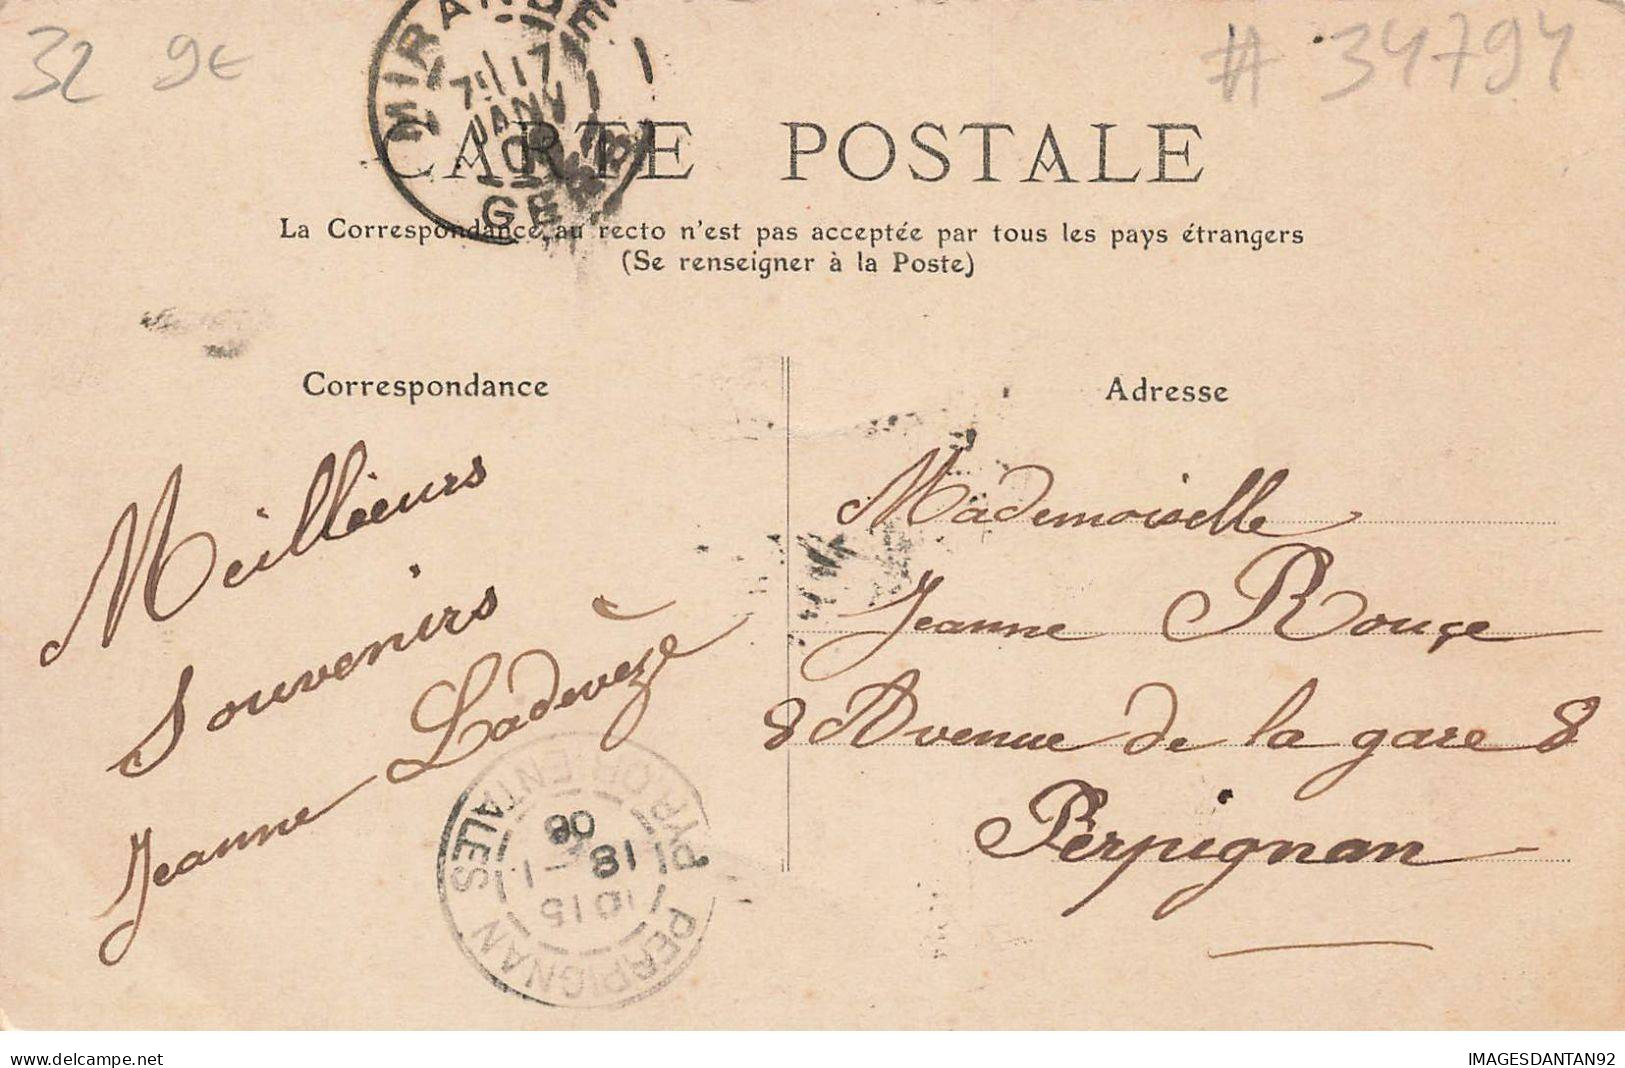 32 9€
# 34794
MIRANDE
7H 17
JANV
GERS
CARTE POSTALE
La Correspondance au recto n'est pas acceptée par tous les pays étrangers
(Se renseigner à la Poste)
Correspondance
Meilleurs
Souvenirs
Jeanne Ladevèze
Adresse
Mademoiselle
Jeanne Rouge
8 Avenue de la gare 8
Perpignan
PERPIGNAN
10 15
18 - 1
06
PYR. ORIENTALES
delcampe.net
IMAGESDANTAN92